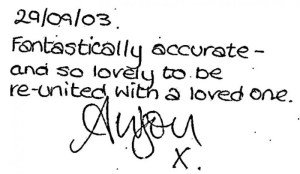 29/09/03.
Fantastically accurate -
and so lovely to be
re-united with a loved one.
x.